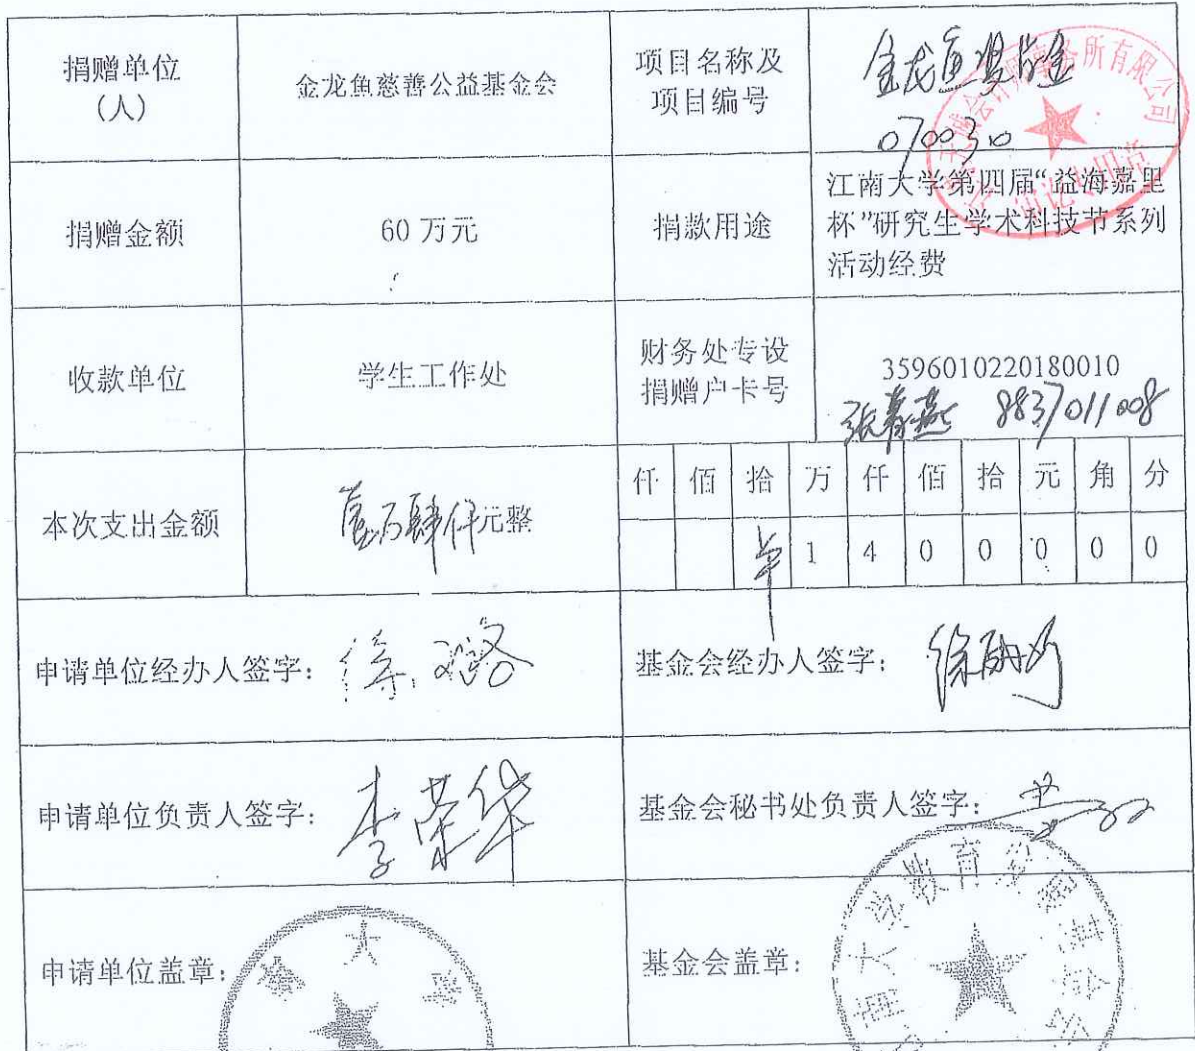 捐赠单位
（人）
金龙鱼慈善公益基金会
项目名称及
项目编号
金龙鱼奖学金
0700310
捐赠金额
60 万元
捐款用途
江南大学第四届“益海嘉里
杯”研究生学术科技节系列
活动经费
收款单位
学生工作处
财务处专设
捐赠户卡号
3596010220180010
张春燕 8837011008
本次支出金额
壹万肆仟元整
仟 佰 拾 万 仟 佰 拾 元 角 分
1 4 0 0 0 0 0
申请单位经办人签字：
基金会经办人签字：
申请单位负责人签字：
李荣华
基金会秘书处负责人签字：
申请单位盖章：
基金会盖章：
大学教育发展基金会